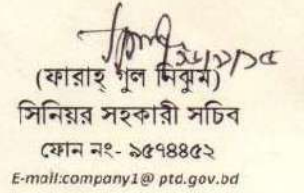 ২৮/১/১৫
(ফারাহ্ গুল নিঝুম)
সিনিয়র সহকারী সচিব
ফোন নং- ৯৫৭৪৪৫২
E-mail:company1@ ptd.gov.bd